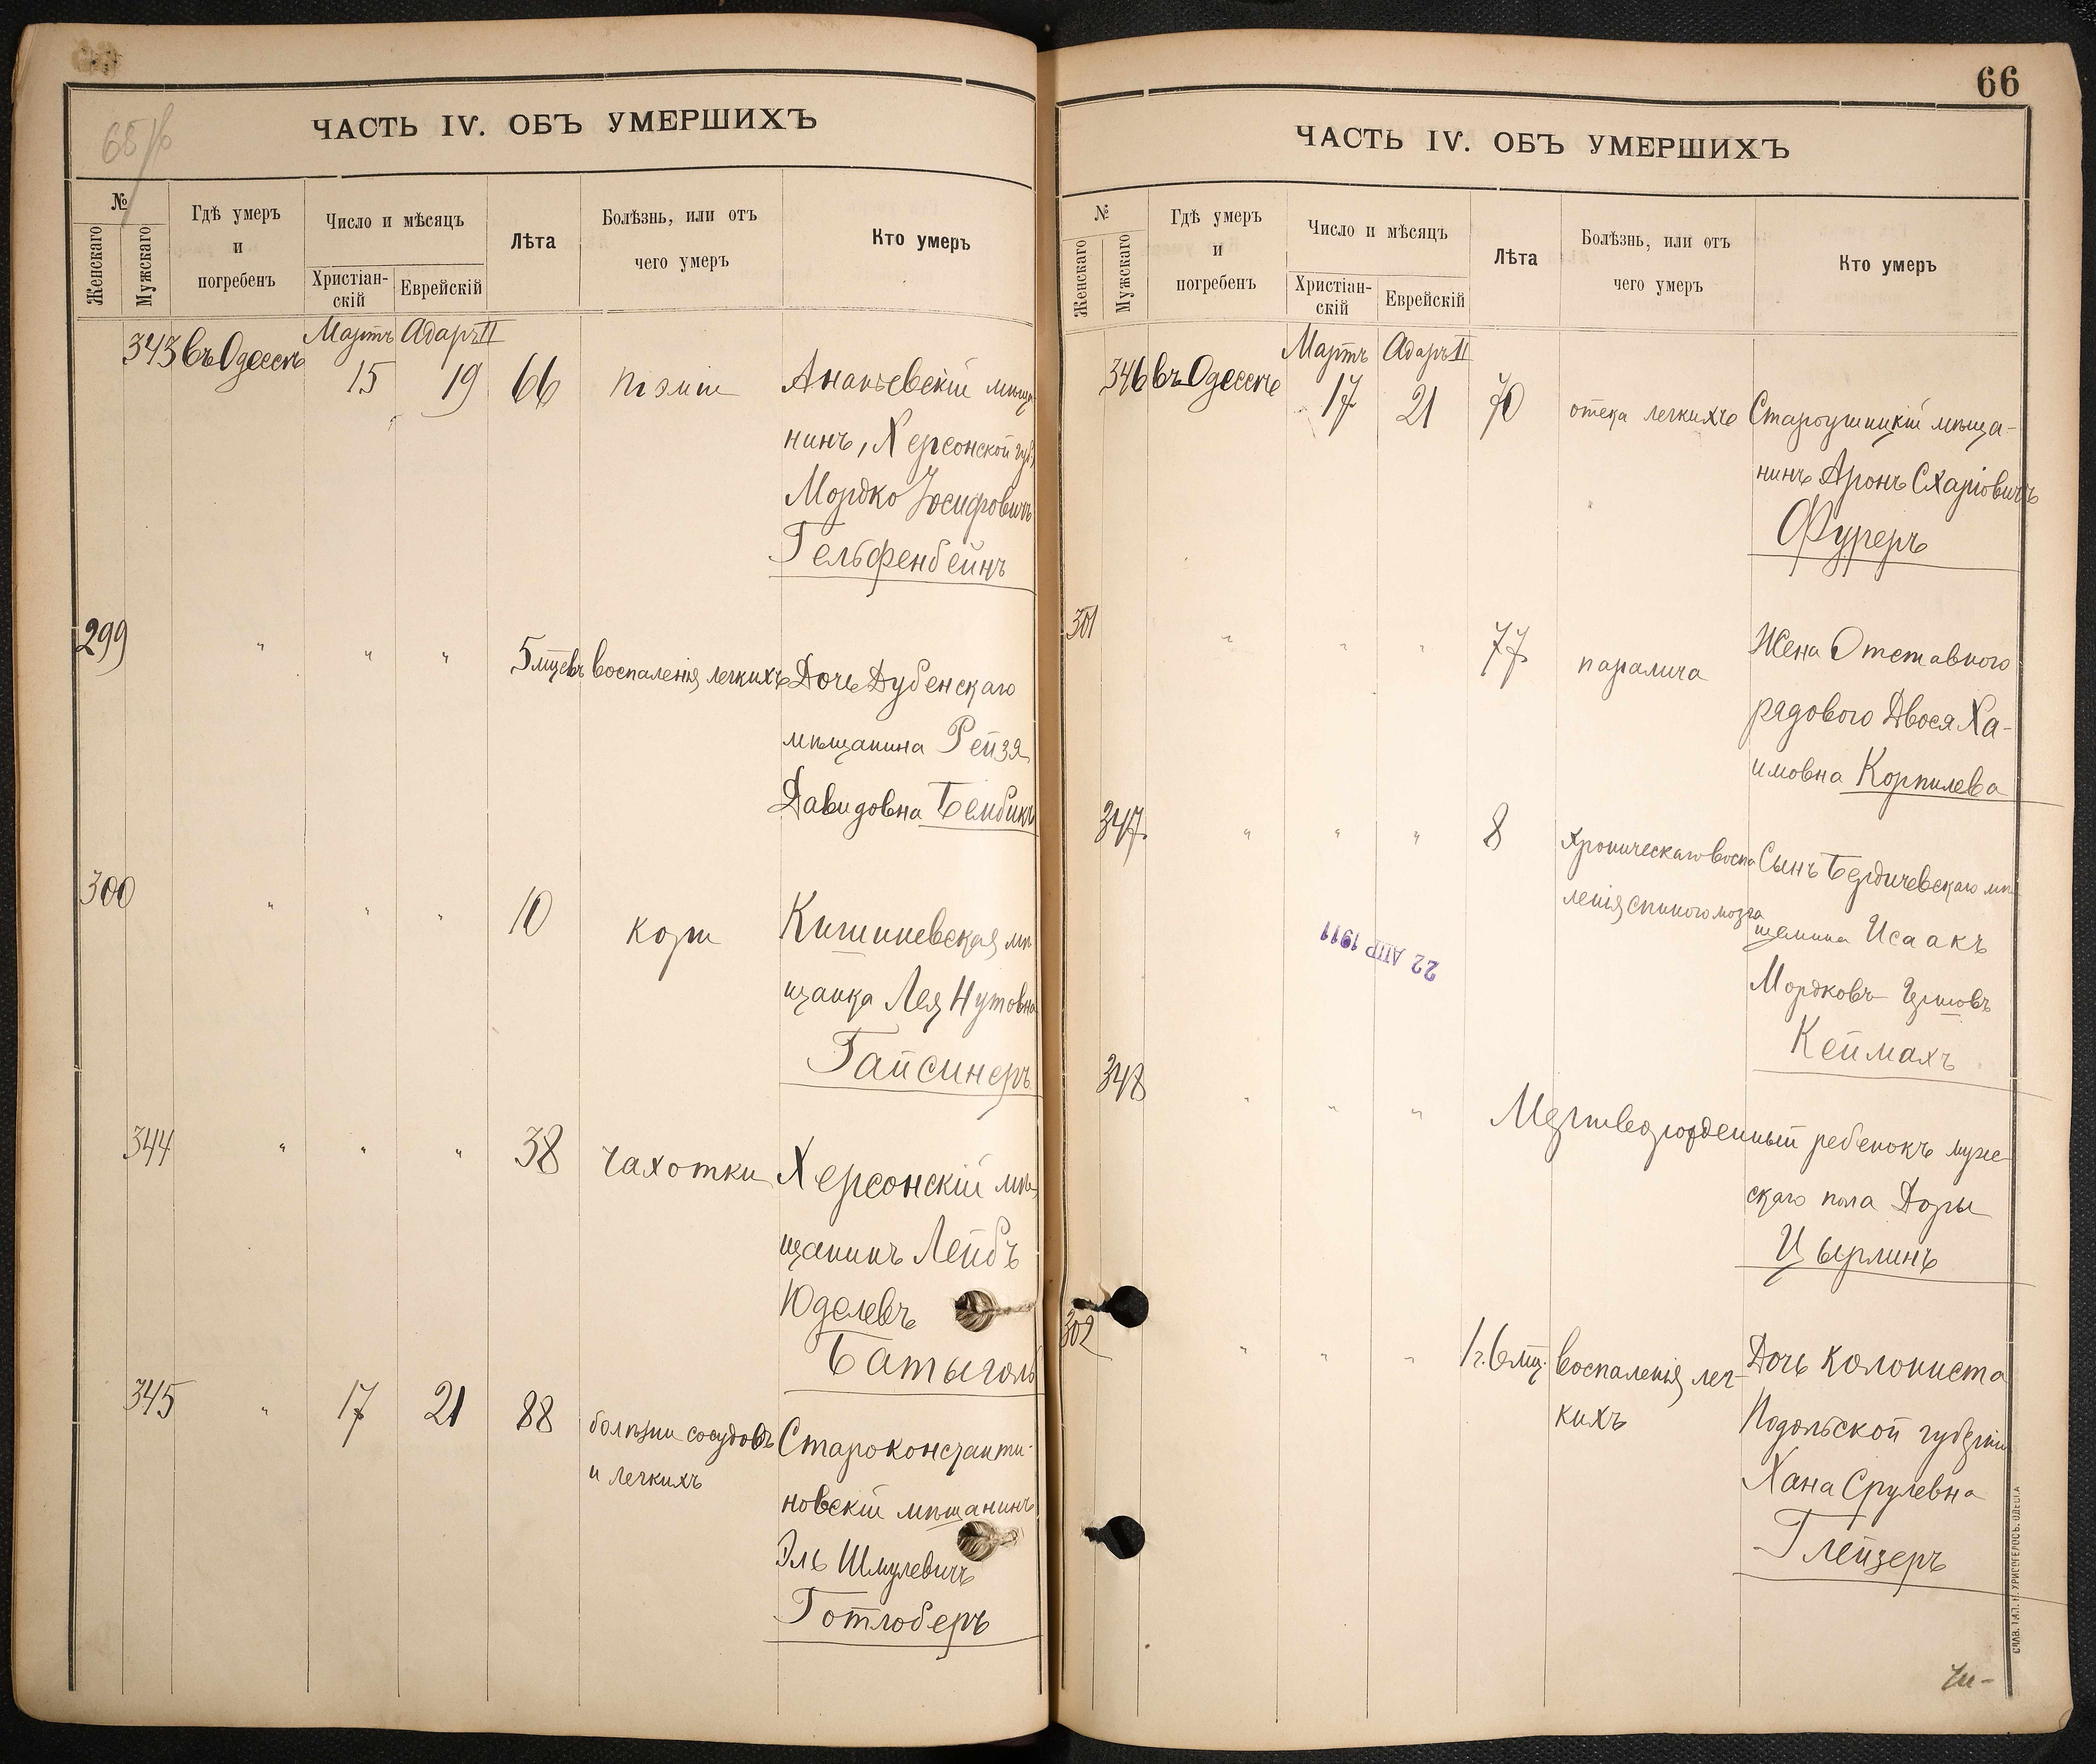 65 об
ЧАСТЬ IV. ОБЪ УМЕРШИХЪ
№
Женскаго
Мужскаго
Гдѣ умеръ
и
погребенъ
Число и мѣсяцъ
Христіан-
скій
Еврейскій
Лѣта
Болѣзнь, или отъ
чего умеръ
Кто умеръ
Мартъ Адаръ II
343 въ Одессѣ 15 19 66 піэміи Ананьевскій мѣща
нинъ, Херсонской губ,
Мордко Іосифовичъ
Гельфенбейнъ
299 " " " 5 мцевъ воспаленія легкихъ Дочь Дубенскаго
мѣщанина Рейзя
Давидовна Бембикъ
300 " " " 10 кори Кишиневская мѣ
щанка Лея Нутовна
Гайсинеръ
344 " " " 38 чахотки Херсонскій мѣ-
щанинъ Лейбъ
Юделевъ
Батыголь
345 " 17 21 88 болѣзни сосудовъ Староконстанти-
и легкихъ
новскій мѣщанинъ
Эль Шмулевичъ
Готлоберъ
66
ЧАСТЬ IV. ОБЪ УМЕРШИХЪ
№
Женскаго
Мужскаго
Гдѣ умеръ
и
погребенъ
Число и мѣсяцъ
Христіан-
скій
Еврейскій
Лѣта
Болѣзнь, или отъ
чего умеръ
Кто умеръ
Мартъ Адаръ II
346 въ Одессѣ 17 21 70 отека легкихъ Староушицкій мѣща-
нинъ Аронъ Схаріовичъ
Фуреръ
301 " " " 77 паралича Жена Отставного
рядового Двося Ха-
имовна Корпилева
347 " " " 8 хроническаго воспа Сынъ Бердичевскаго мѣ
ленія спиного мозга
щанина Исаакъ
22 АПР 1911
Мордковъ Гершовъ
Кеймахъ
348 " " " Мертворожденный ребенокъ муже
скаго пола Доры
Цырлинъ
302 " " " 1 г. 6 мц. воспаленія лег- Дочь колониста
кихъ
Подольской губерніи
Хана Срулевна
Глейзеръ
СЛАВ. ТИП. Н. ХРИСОГЕЛОСЪ. ОДЕССА